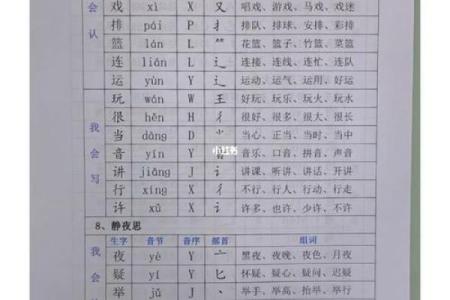 会认
戏 xì X 又 唱戏、游戏、马戏、戏水
排 pái P 扌 排队、排球、安排、彩排
篮 lán L 花篮、篮子、竹篮、菜篮
连 lián L 辶 连接、连线、连忙、连队
运 yùn Y 辶 运动、运气、运用、好运
我会写
玩 wán W 王 好玩、玩乐、玩火、玩水
很 hěn H 彳 很好、很多、很大、很长
当 dāng D 当心、正当、当时、当中
音 yīn Y 音乐、口音、拼音、声音
小红书
讲 jiǎng J 讠 讲课、听讲、讲话、开讲
行 xíng X 彳 不行、行人、行动、行走
许 xǔ X 讠 许多、也许、少许、不许
8、静夜思
生字 音节 音序 部首 组词
我会
夜 yè Y 亠 黑夜、夜晚、夜色、月夜
疑 yí Y 匕 怀疑、疑心、疑问、迟疑
举 jǔ J 举手、举高、抬举、举行